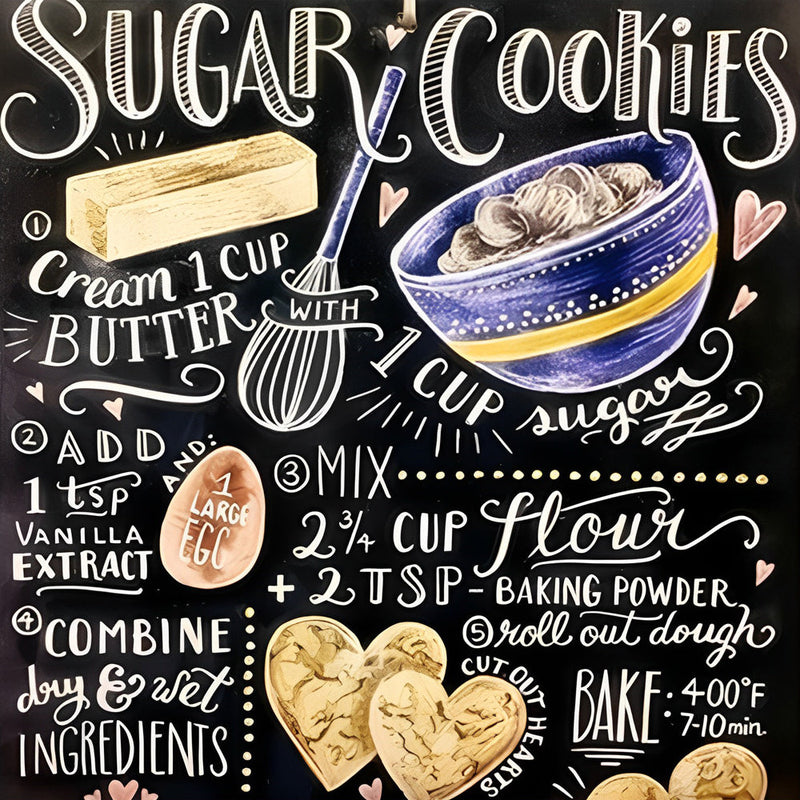 SUGAR COOKIES
1
Cream 1 CUP
BUTTER WITH
1 CUP sugar
2 ADD
1 tsp
VANILLA
EXTRACT
AND:
1
LARGE
EGG
3 MIX
2 3/4 CUP flour
+ 2 TSP - BAKING POWDER
4 COMBINE
dry & wet
INGREDIENTS
5 roll out dough
CUT OUT HEARTS
BAKE: 400°F
7-10 min.